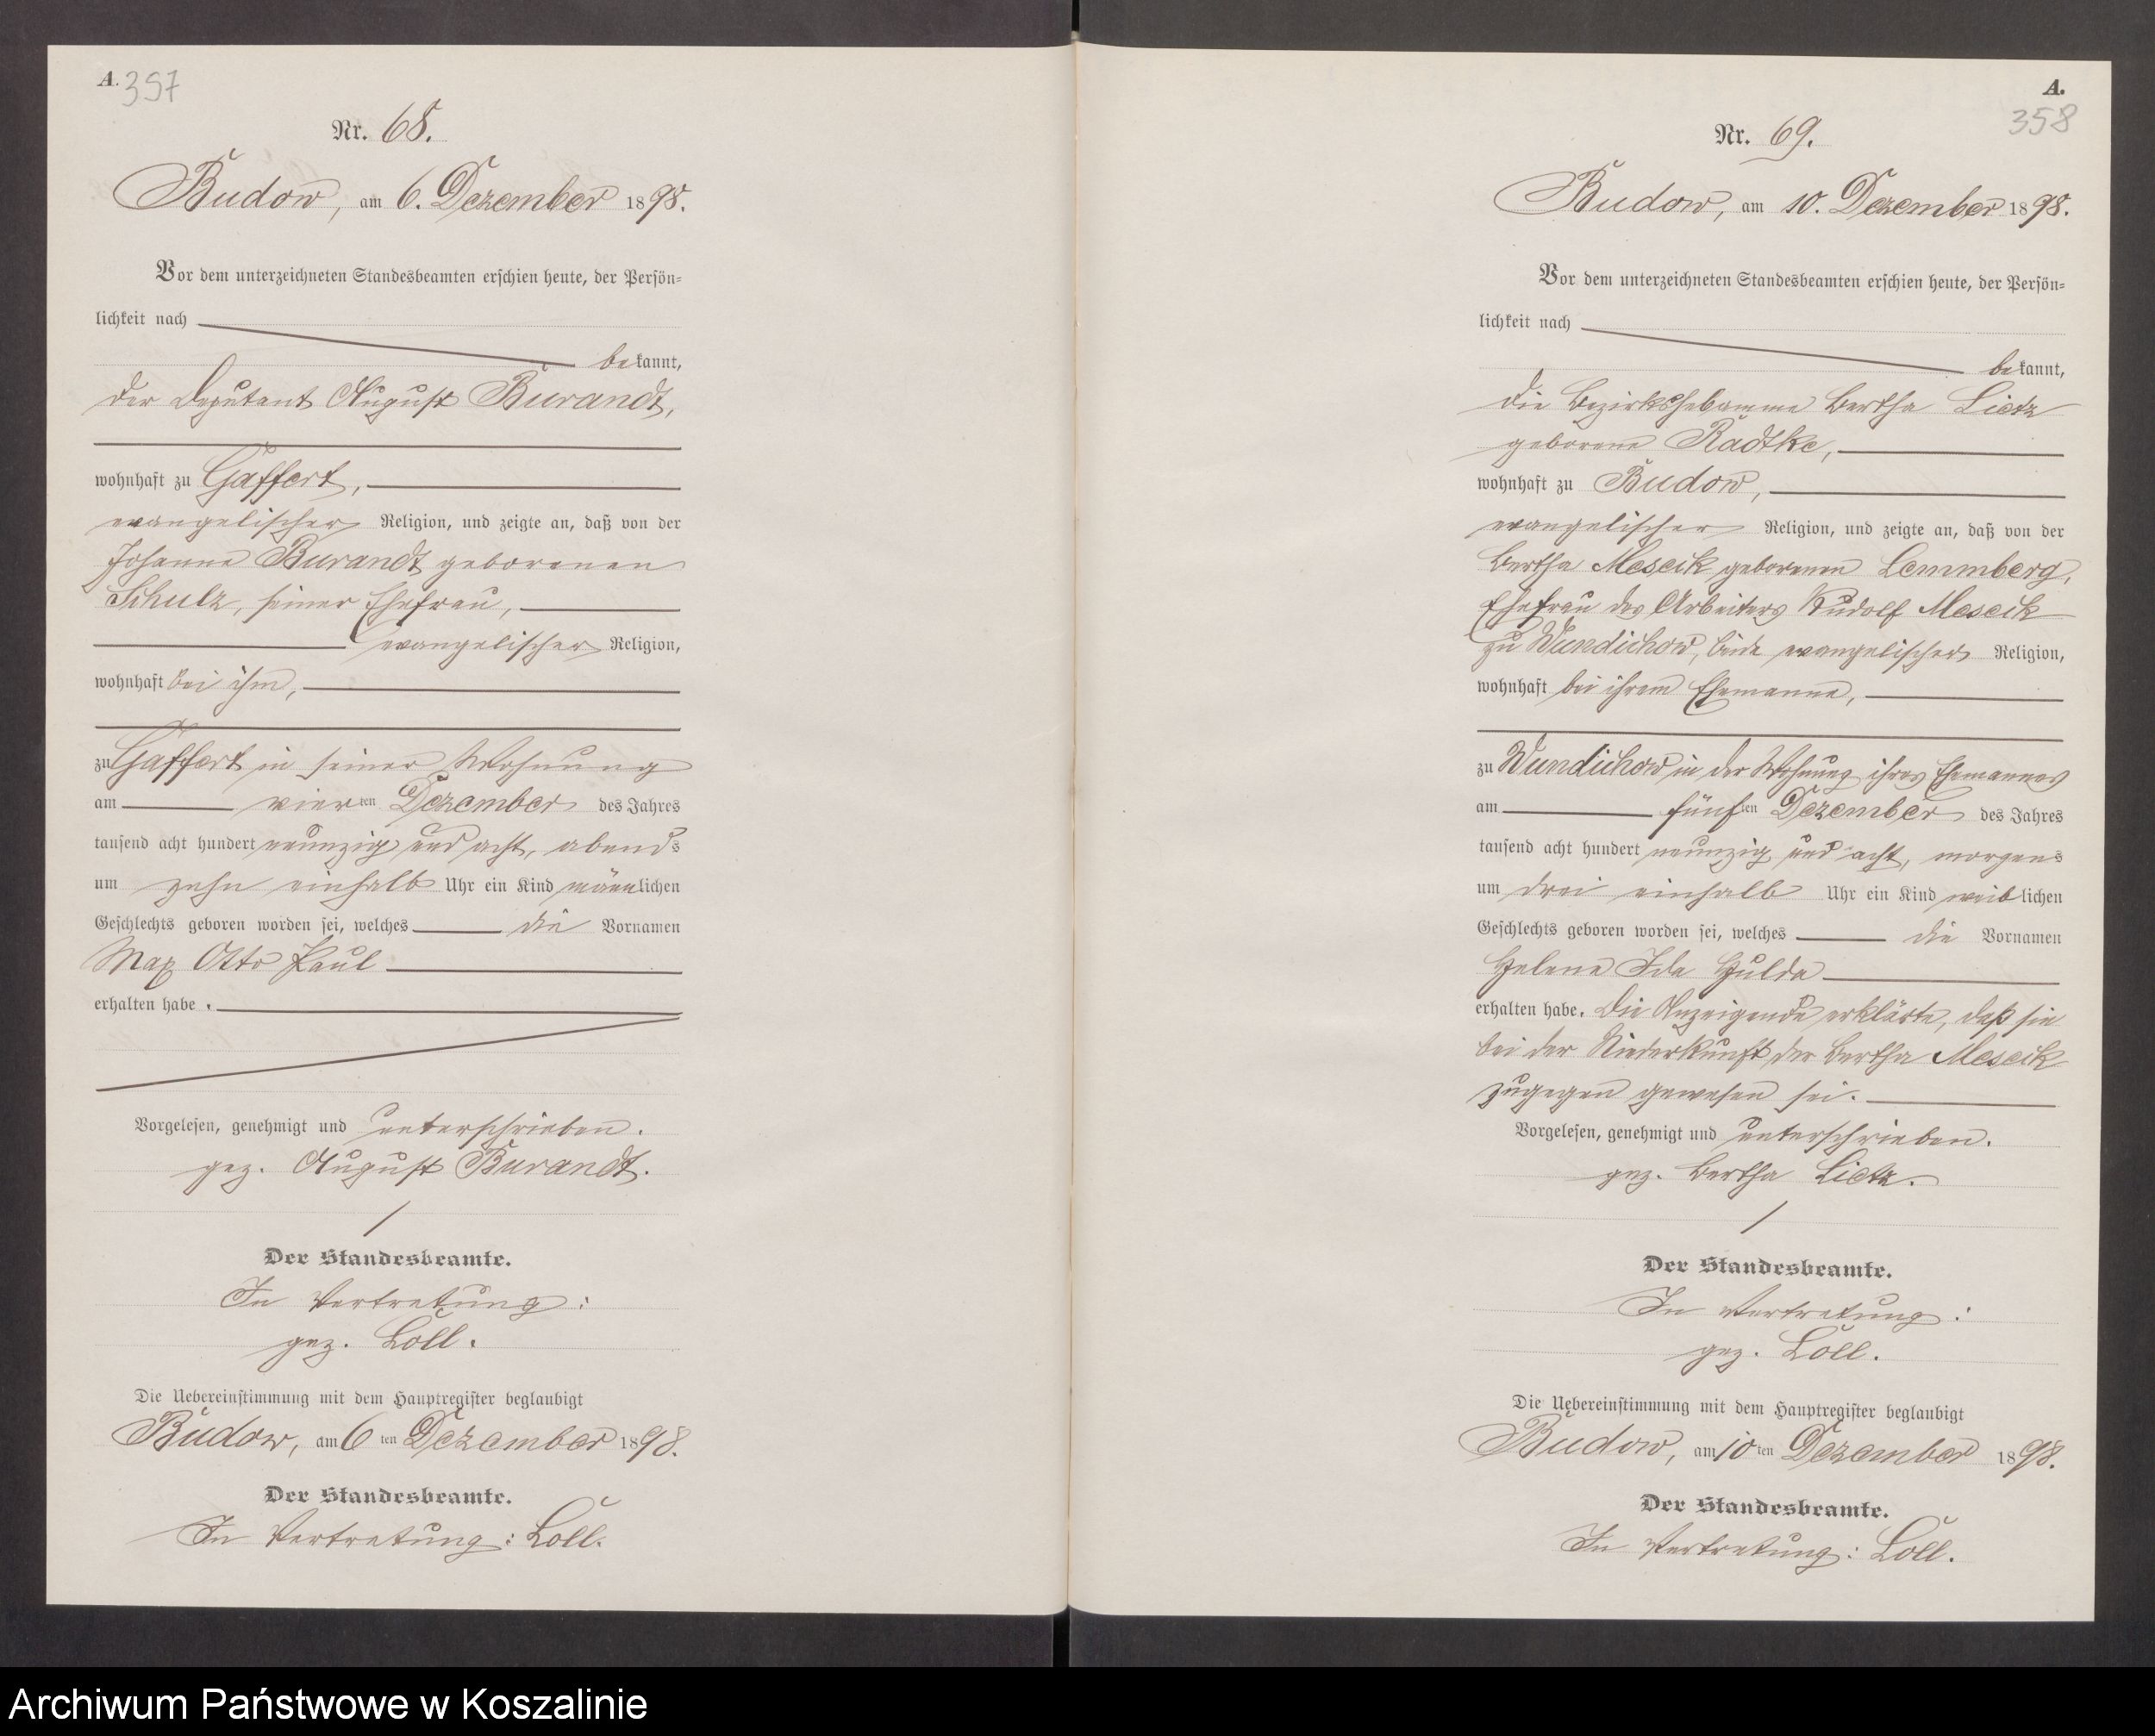 A. 357
Nr. 68.
Budow, am 6. Dezember 1898.
Vor dem unterzeichneten Standesbeamten erschien heute, der Persön-
lichkeit nach
bekannt,
der Deputant August Burandt,
wohnhaft zu Gaffert,
evangelischer Religion, und zeigte an, daß von der
Johanne Burandt geborenen
Schulz, seiner Ehefrau,
evangelischer Religion,
wohnhaft bei ihm,
zu Gaffert in seiner Wohnung
am vierten Dezember des Jahres
tausend acht hundert neunzig und acht, abends
um zehn einhalb Uhr ein Kind männlichen
Geschlechts geboren worden sei, welches die Vornamen
Max Otto Paul
erhalten habe.
Vorgelesen, genehmigt und unterschrieben.
gez. August Burandt.
Der Standesbeamte.
In Vertretung:
gez. Loll.
Die Uebereinstimmung mit dem Hauptregister beglaubigt
Budow, am 6ten Dezember 1898.
Der Standesbeamte.
In Vertretung: Loll.
A.
358
Nr. 69.
Budow, am 10. Dezember 1898.
Vor dem unterzeichneten Standesbeamten erschien heute, der Persön-
lichkeit nach
bekannt,
die Bezirkshebamme Bertha Lietz
geborene Radtke,
wohnhaft zu Budow,
evangelischer Religion, und zeigte an, daß von der
Bertha Mescik geborenen Lemmberg,
Ehefrau des Arbeiters Rudolf Mescik
zu Wundichow, beide evangelischer Religion,
wohnhaft bei ihrem Ehemanne,
zu Wundichow in der Wohnung ihres Ehemannes
am fünften Dezember des Jahres
tausend acht hundert neunzig und acht, morgens
um drei einhalb Uhr ein Kind weiblichen
Geschlechts geboren worden sei, welches die Vornamen
Helene Ida Hulda
erhalten habe. Die Anzeigende erklärte, daß sie
bei der Niederkunft der Bertha Mescik
zugegen gewesen sei.
Vorgelesen, genehmigt und unterschrieben.
gez. Bertha Lietz.
Der Standesbeamte.
In Vertretung:
gez. Loll.
Die Uebereinstimmung mit dem Hauptregister beglaubigt
Budow, am 10ten Dezember 1898.
Der Standesbeamte.
In Vertretung: Loll.
Archiwum Państwowe w Koszalinie